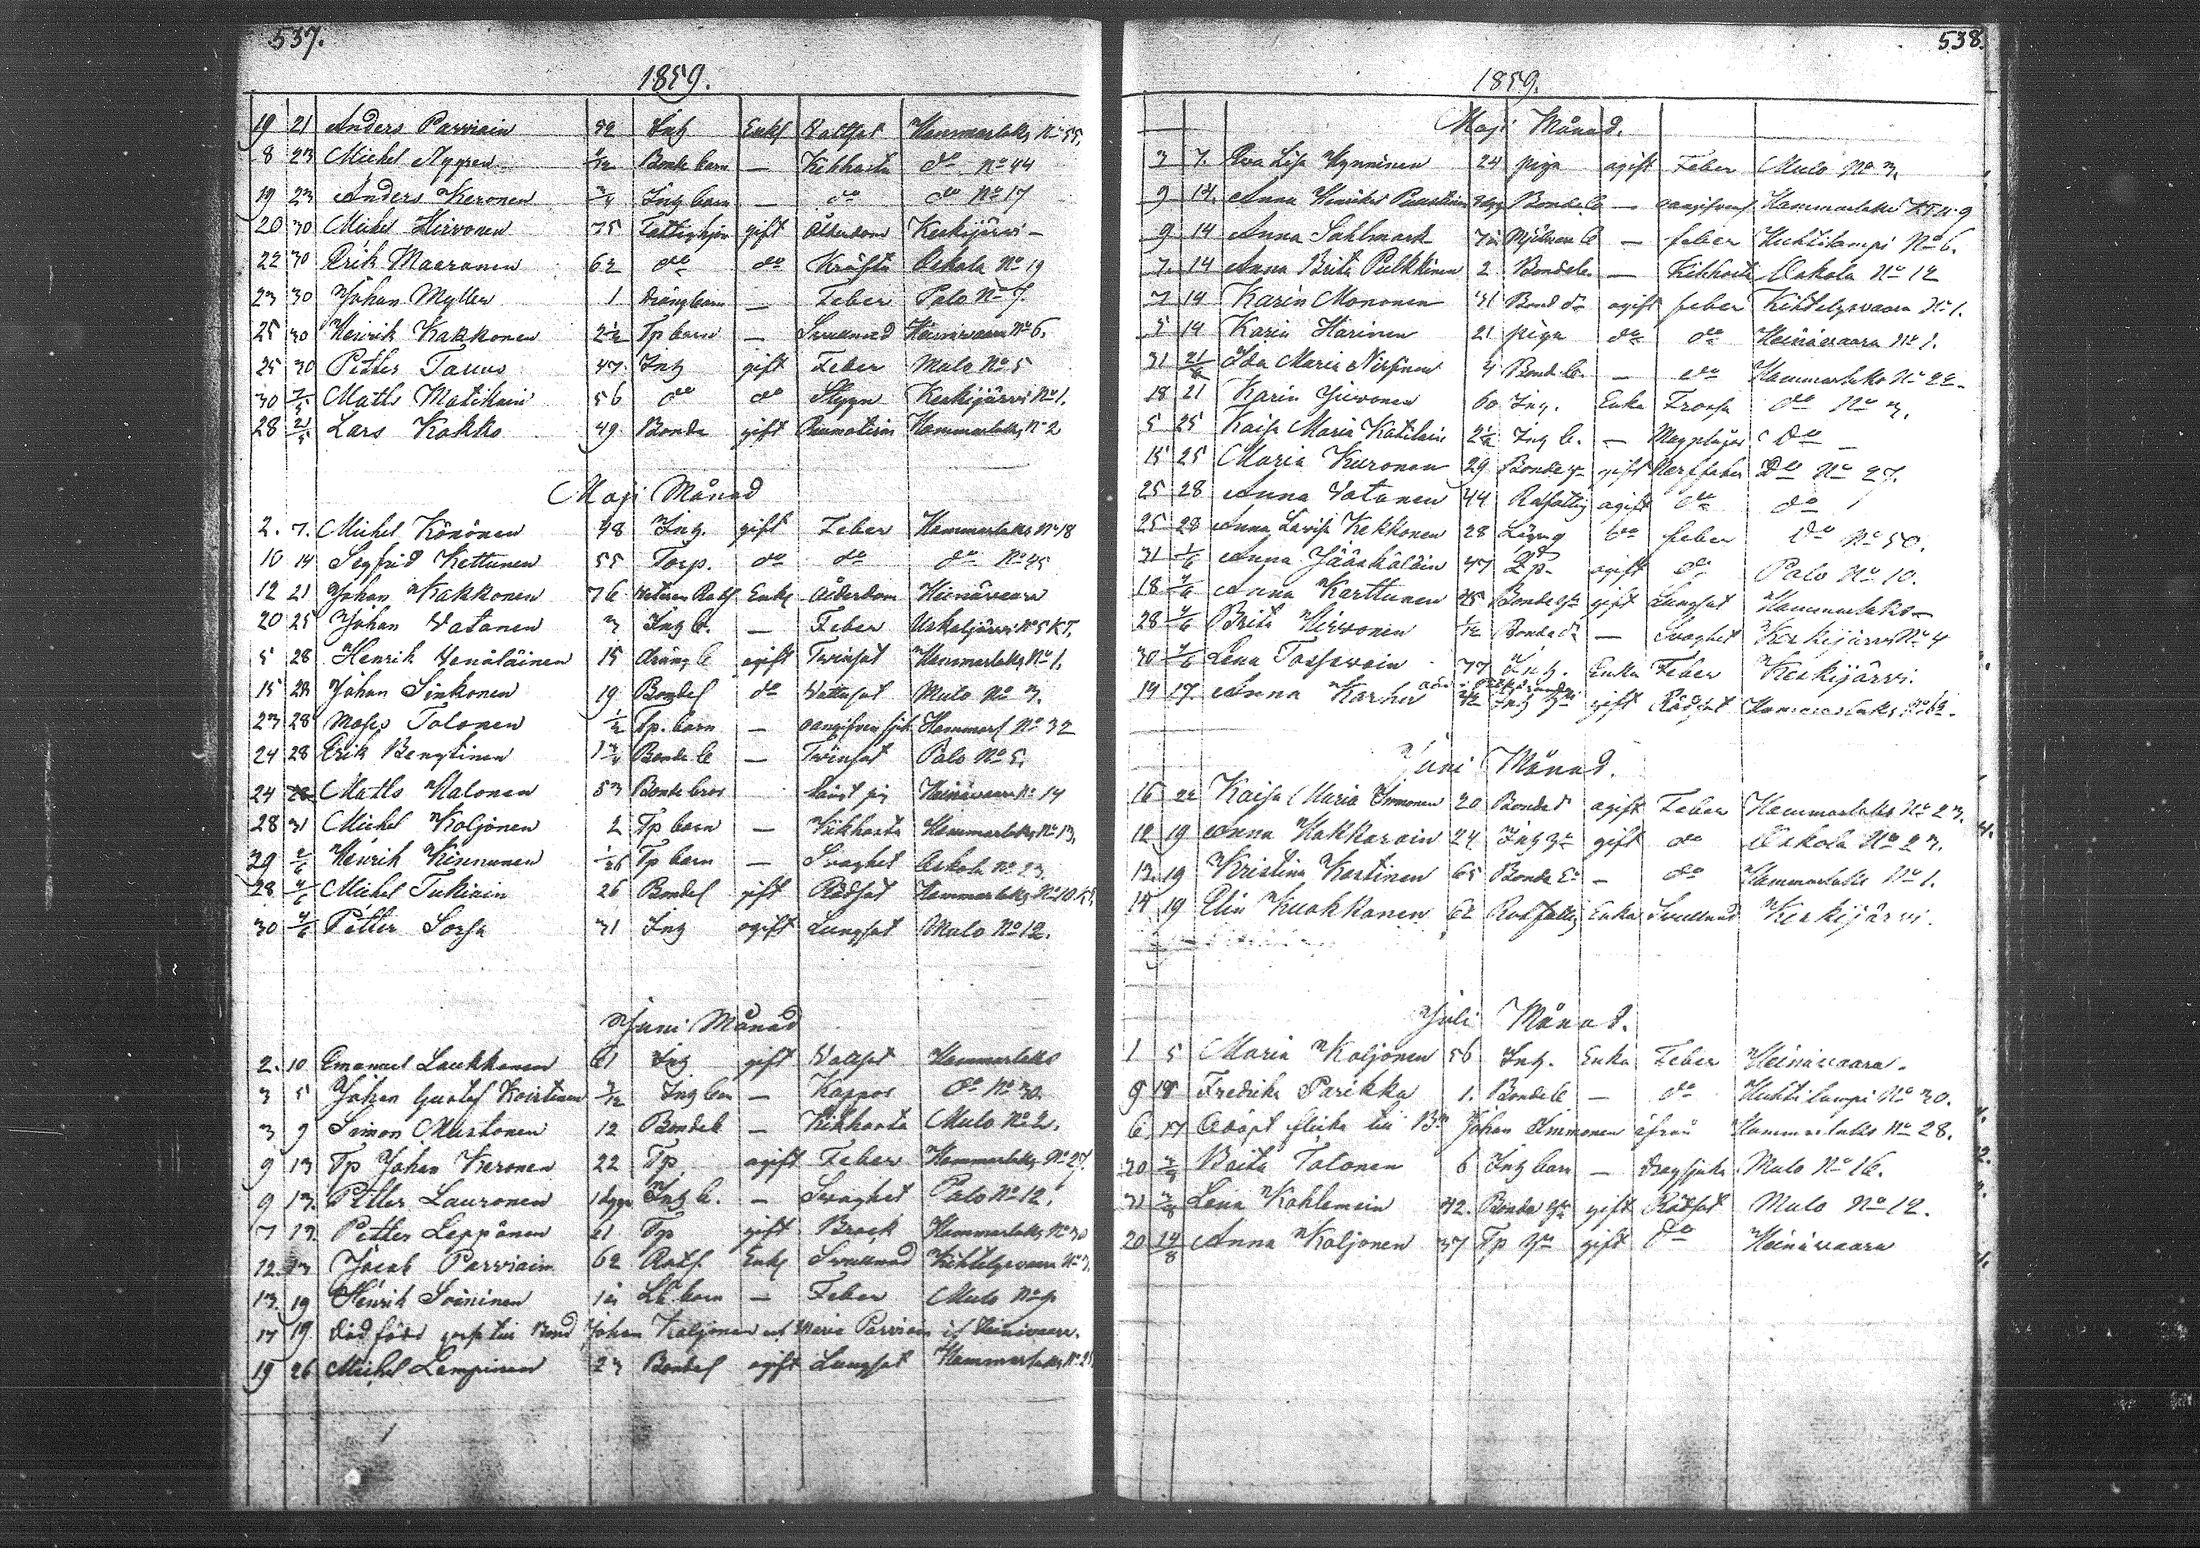 537.
1859.
19 21 Anders Parviain 52 Inh Enkl Vattsot Hammarlaks No 55.
8 23 Michel Nygren Bonde barn — Kikhosta do No 44
19 23 Anders Keronen 3/4 Inh barn — do do No 17
20 30 Michel Hirvonen 75 Fattighjon gift Ålderdom Keskijärvi —
22 30 Erik Maeronen 62 do do Kräfta Oskola No 19
23 30 Johan Myller 1 Dräng barn — Feber Palo No 7.
25 30 Henrik Kakkonen 2 1/2 Tp barn — Svullnad Heinävaara No 6.
25 30 Petter Tanus 47 Inh gift Feber Mulo No 5
30 7/5 Matts Matikain 56 do do Stygn Keskijärvi No 1.
28 21/5 Lars Kokko 49 Bonde gift Reumatism Hammarlaks No 2
Maji Månad
2. 7. Michel Könönen 48 Inh. gift Feber Hammarlaks No 18
10 14 Segfrid Kettunen 55 Torp. do do do No 45
12 21 Johan Kakkonen 76 Enkl Ålderdom Heinävaara
20 25 Johan Vatanen 3 Inh b. — Feber Uskaljärvi No 5 KT.
5 28 Henrik Venäläinen 15 Dräng b ogift Twinsot Hammarlaks No 1.
15 28 Johan Sinkonen 19 Bondes do Vattusot Mulo No 3.
23 28 Moses Tolonen 1/2 Tp. barn — oangifven sjuk Hammarl No 32
24 28 Erik Bengtinen 1 3/4 Bonde b — Twinsot Palo No 5.
24 28 Matts Malonen 53 Bonde bror — Heinävaara No 14
28 31 Michel Koljonen 2 Tp barn — Kikhosta Hammarlaks No 13.
29 2/6 Henrik Kinnunen Tp barn — Svaghet Oskola No 23.
28 4/6 Michel Tukiain 26 Bondes gift Rödsot Hammarlaks No 10
30 4/6 Petter Sorsa 31 Inh ogift Lungsot Mulo No 12.
Juni Månad
2. 10 Emanuel Laukkanen 61 Inh gift Vattsot Hammarlaks
3 5 Johan Gustaf Koistinen Inh barn — Koppor do No 30.
3 9 Simon Mustonen 12 Bondeb — Kikhosta Mulo No 2.
9 13 Tp Johan Keronen 22 Tp ogift Feber Hammarlaks No 27.
9 13. Petter Lauronen 1 dygn Inh b. — Svaghet Palo No 12.
7 13. Petter Leppänen 21 Tp gift Brock Hammarlaks No 30
12. 13 Jacob Parviain 62 Rotf. Enkl Svullnad Kihtelysvaara No 3.
13. 19 Henrik Soininen barn — Feber Mulo No 9
17 19 Död född till Bond Johan Koljonen och Maria Parviain Heinävaara.
19 26 Michel Lempinen 23 Bondes ogift Lungsot Hammarlaks No 25
538.
1859.
Maji Månad.
3 7. Eva Lisa Kynninen 24 piga ogift Feber Mulo No 3.
9 14. Anna Henrika Bonde b — oangifven Hammarlaks KT No 9
9 14 Anna Sahlmark — feber Huhtilampi No 6.
7. 14 Anna Brita Pulkkinen 2 Bondeb — Kikhosta Oskola No 12
7 14 Karin Mononen 31 Bond dr ogift feber Kihtelysvaara No 1.
5 14 Karin Harinen 21 piga do do Heinävaara No 1.
31 21/6 Ida Maria Nissinen 4 Bonde b. — do Hammarlaks No 22.
18 21 Karin Juvonen 60 Inh. Enka Frossa do No 3.
5 25 Kaisa Maria Katilain 2 1/2 Inh b. — Magplågor do —
15 25 Maria Kuronen 29 Bonde gift do No 27.
25 28 Anna Vatanen 44 Rotfattig ogift do do
25 28 Anna Lovisa Kekkonen 28 feber do No 50.
31 1/6 Anna Jääskäläin 47 ogift do Palo No 10.
18 4/6 Anna Karttunen 45 Bonde gift Lungsot Hammarlaks —
28 4/6 Brita Hirvonen Bonde dr — Svaghet Keskijärvi No 4
30 4/6 Lena Tossavain 77 Inh. Enka Feber Keskijärvi.
14 17. Anna Karhu 42 Inh gift Rödsot Hammarlaks No 62.
Juni Månad.
16 22 Kaisa Maria Immonen 20 Bonde d ogift Feber Hammarlaks No 23.
12 19 Anna Hakkarain 24 Inh gift do Oskola No 23.
13. 19 Kristina Kostinen 65 Bonde — do Hammarlaks No 1.
14 19 Elin Kuokkanen 62 Rotfattig Enka Svullnad Keskijärvi.
Juli Månad.
1 5 Maria Koljonen 56 Inh. Enka Feber Heinävaara.
9 18 Fredrika Parikka 1. Bonde b — do Huhtilampi No 30.
6 17 Odöpt flicka till Bn Johan Immonen ifrån Hammarlaks No 28.
30 Brita Tolonen 6 Inh barn — Dragsjuka Mulo No 16.
31 7/8 Lena Kohlemain 42. Bonde gift Rödsot Mulo No 12.
20 14/8 Anna Koljonen 37 Tp gift do Heinävaara